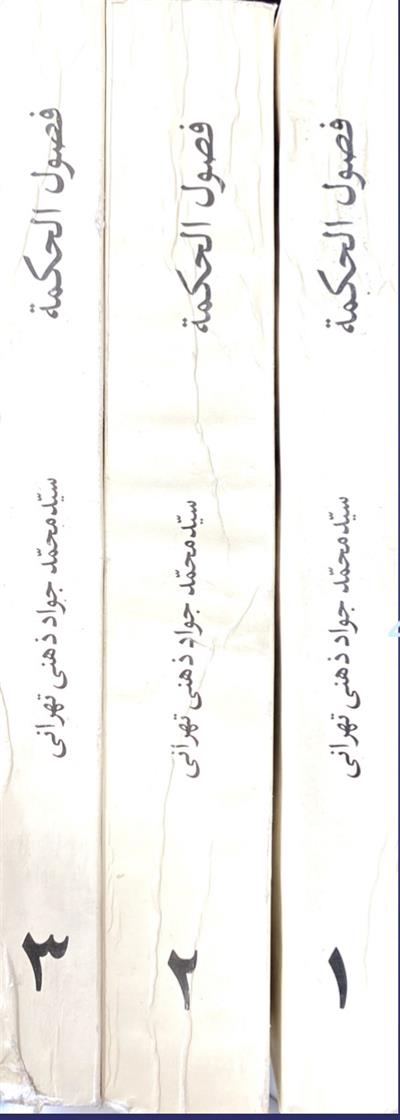 فصول الحكمة
سيّد محمّد جواد ذهنى تهرانى
١
فصول الحكمة
سيّد محمّد جواد ذهنى تهرانى
٢
فصول الحكمة
سيّد محمّد جواد ذهنى تهرانى
٣